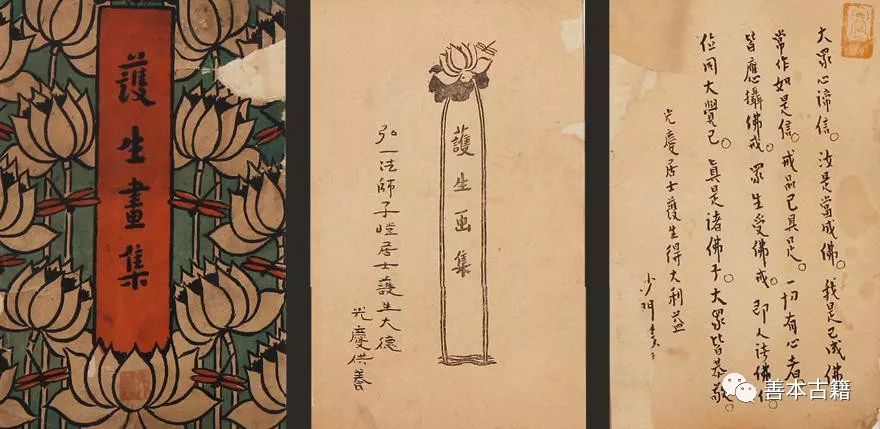 護生畫集
護生画集
弘一法師子愷居士護生大德
光慶供養
大眾心諦信。汝是當成佛。我是已成佛。
常作如是信。戒品已具足。一切有心者。
皆應攝佛戒。眾生受佛戒。即入諸佛位。
位同大覺已。真是諸佛子。大眾皆恭敬。
光慶居士護生得大利益
沙門
善本古籍